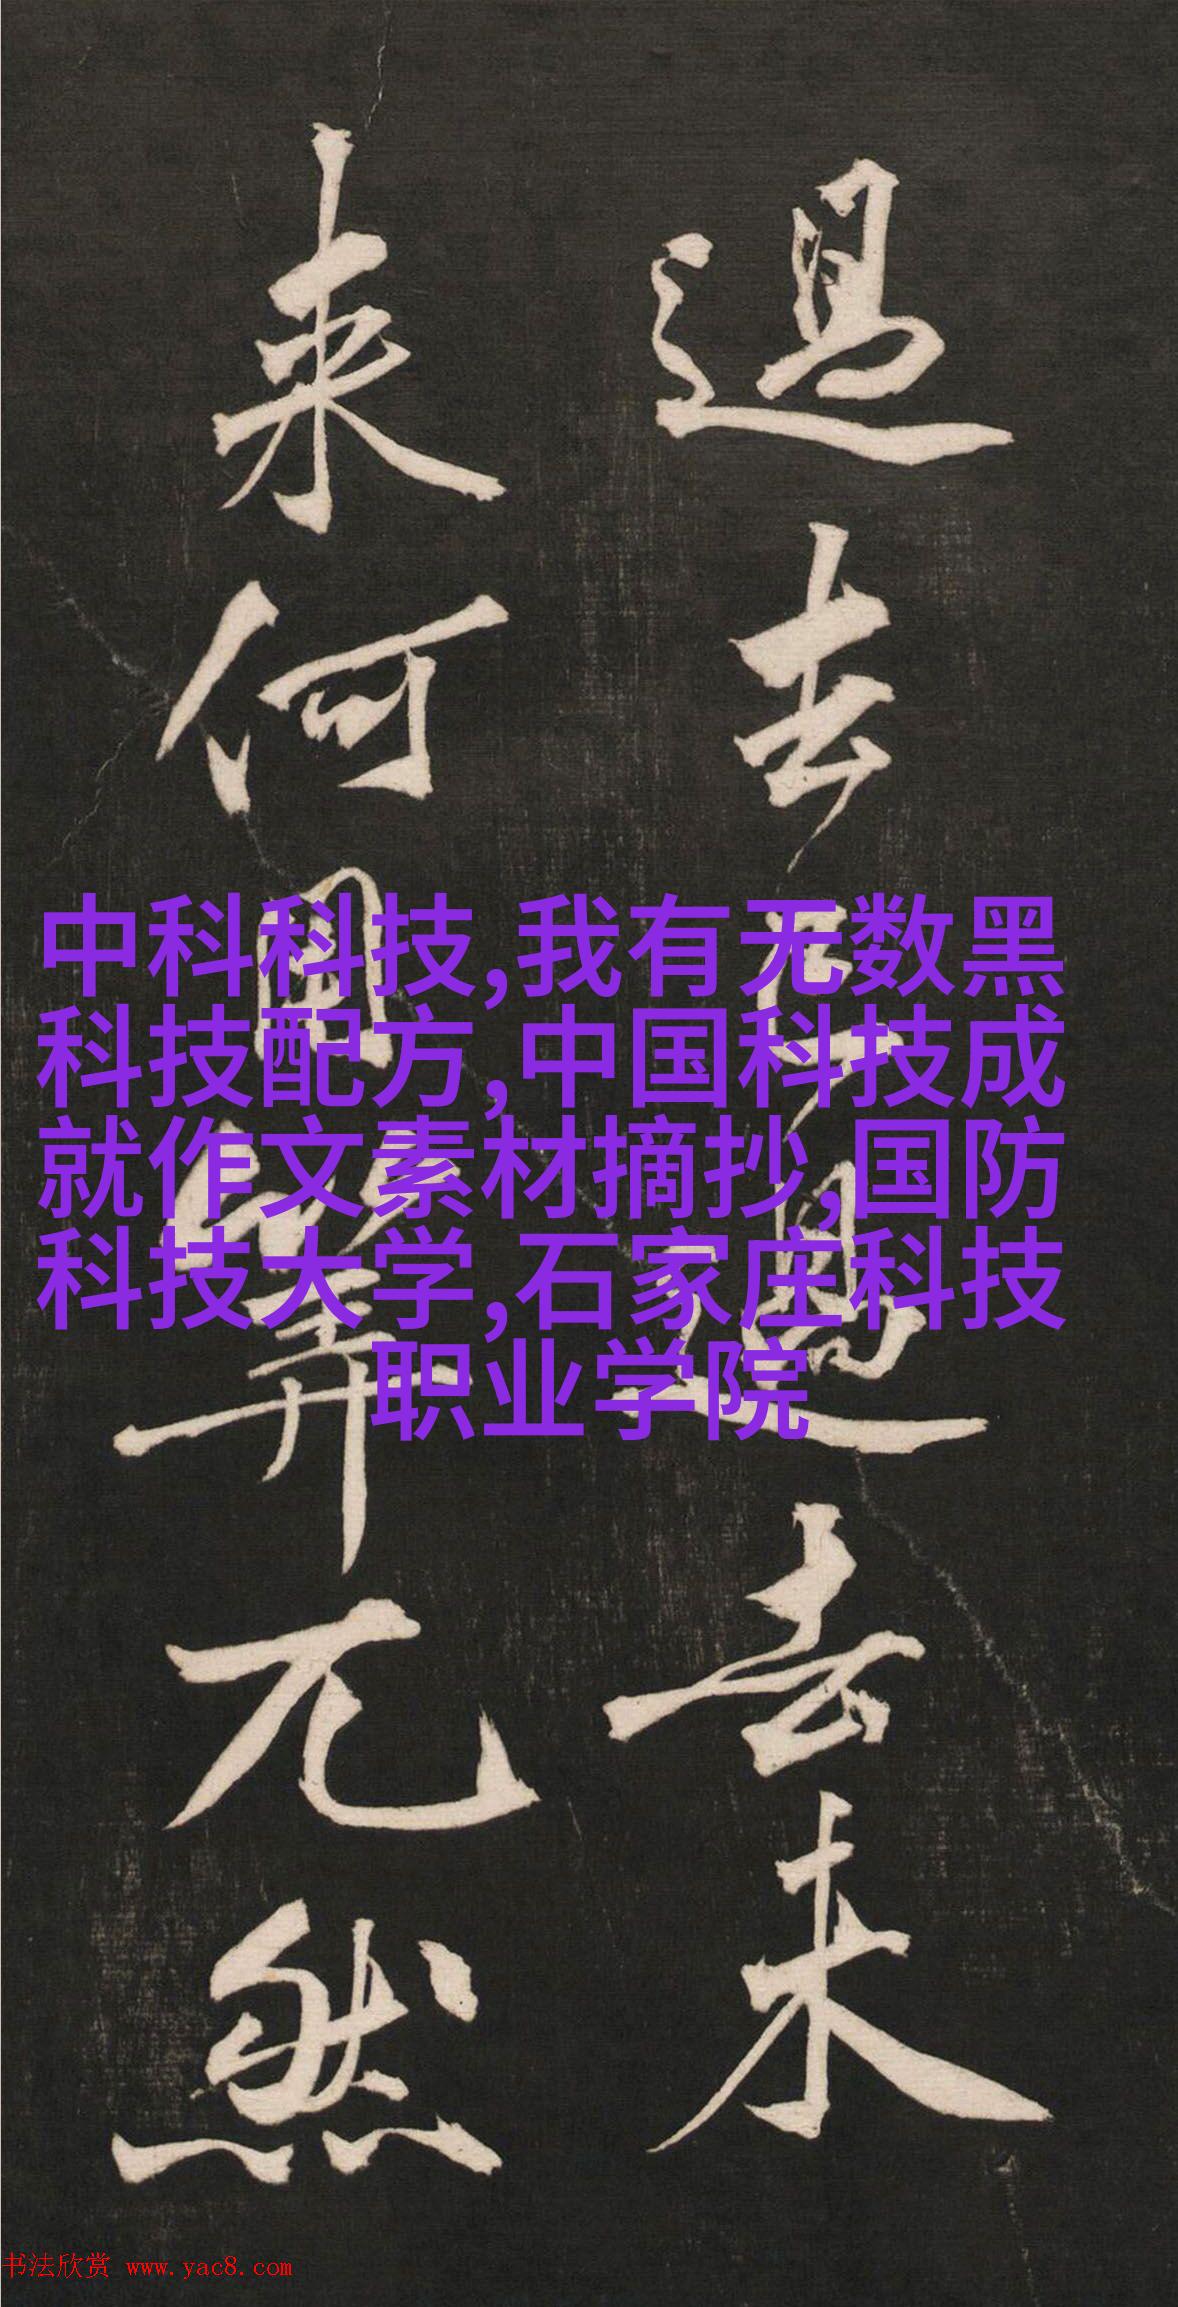 過去已過去未
来何用筭兀然
中科科技,我有无数黑
科技配方,中国科技成
就作文素材摘抄,国防
科技大学,石家庄科技
职业学院
书法欣赏 www.yac8.com